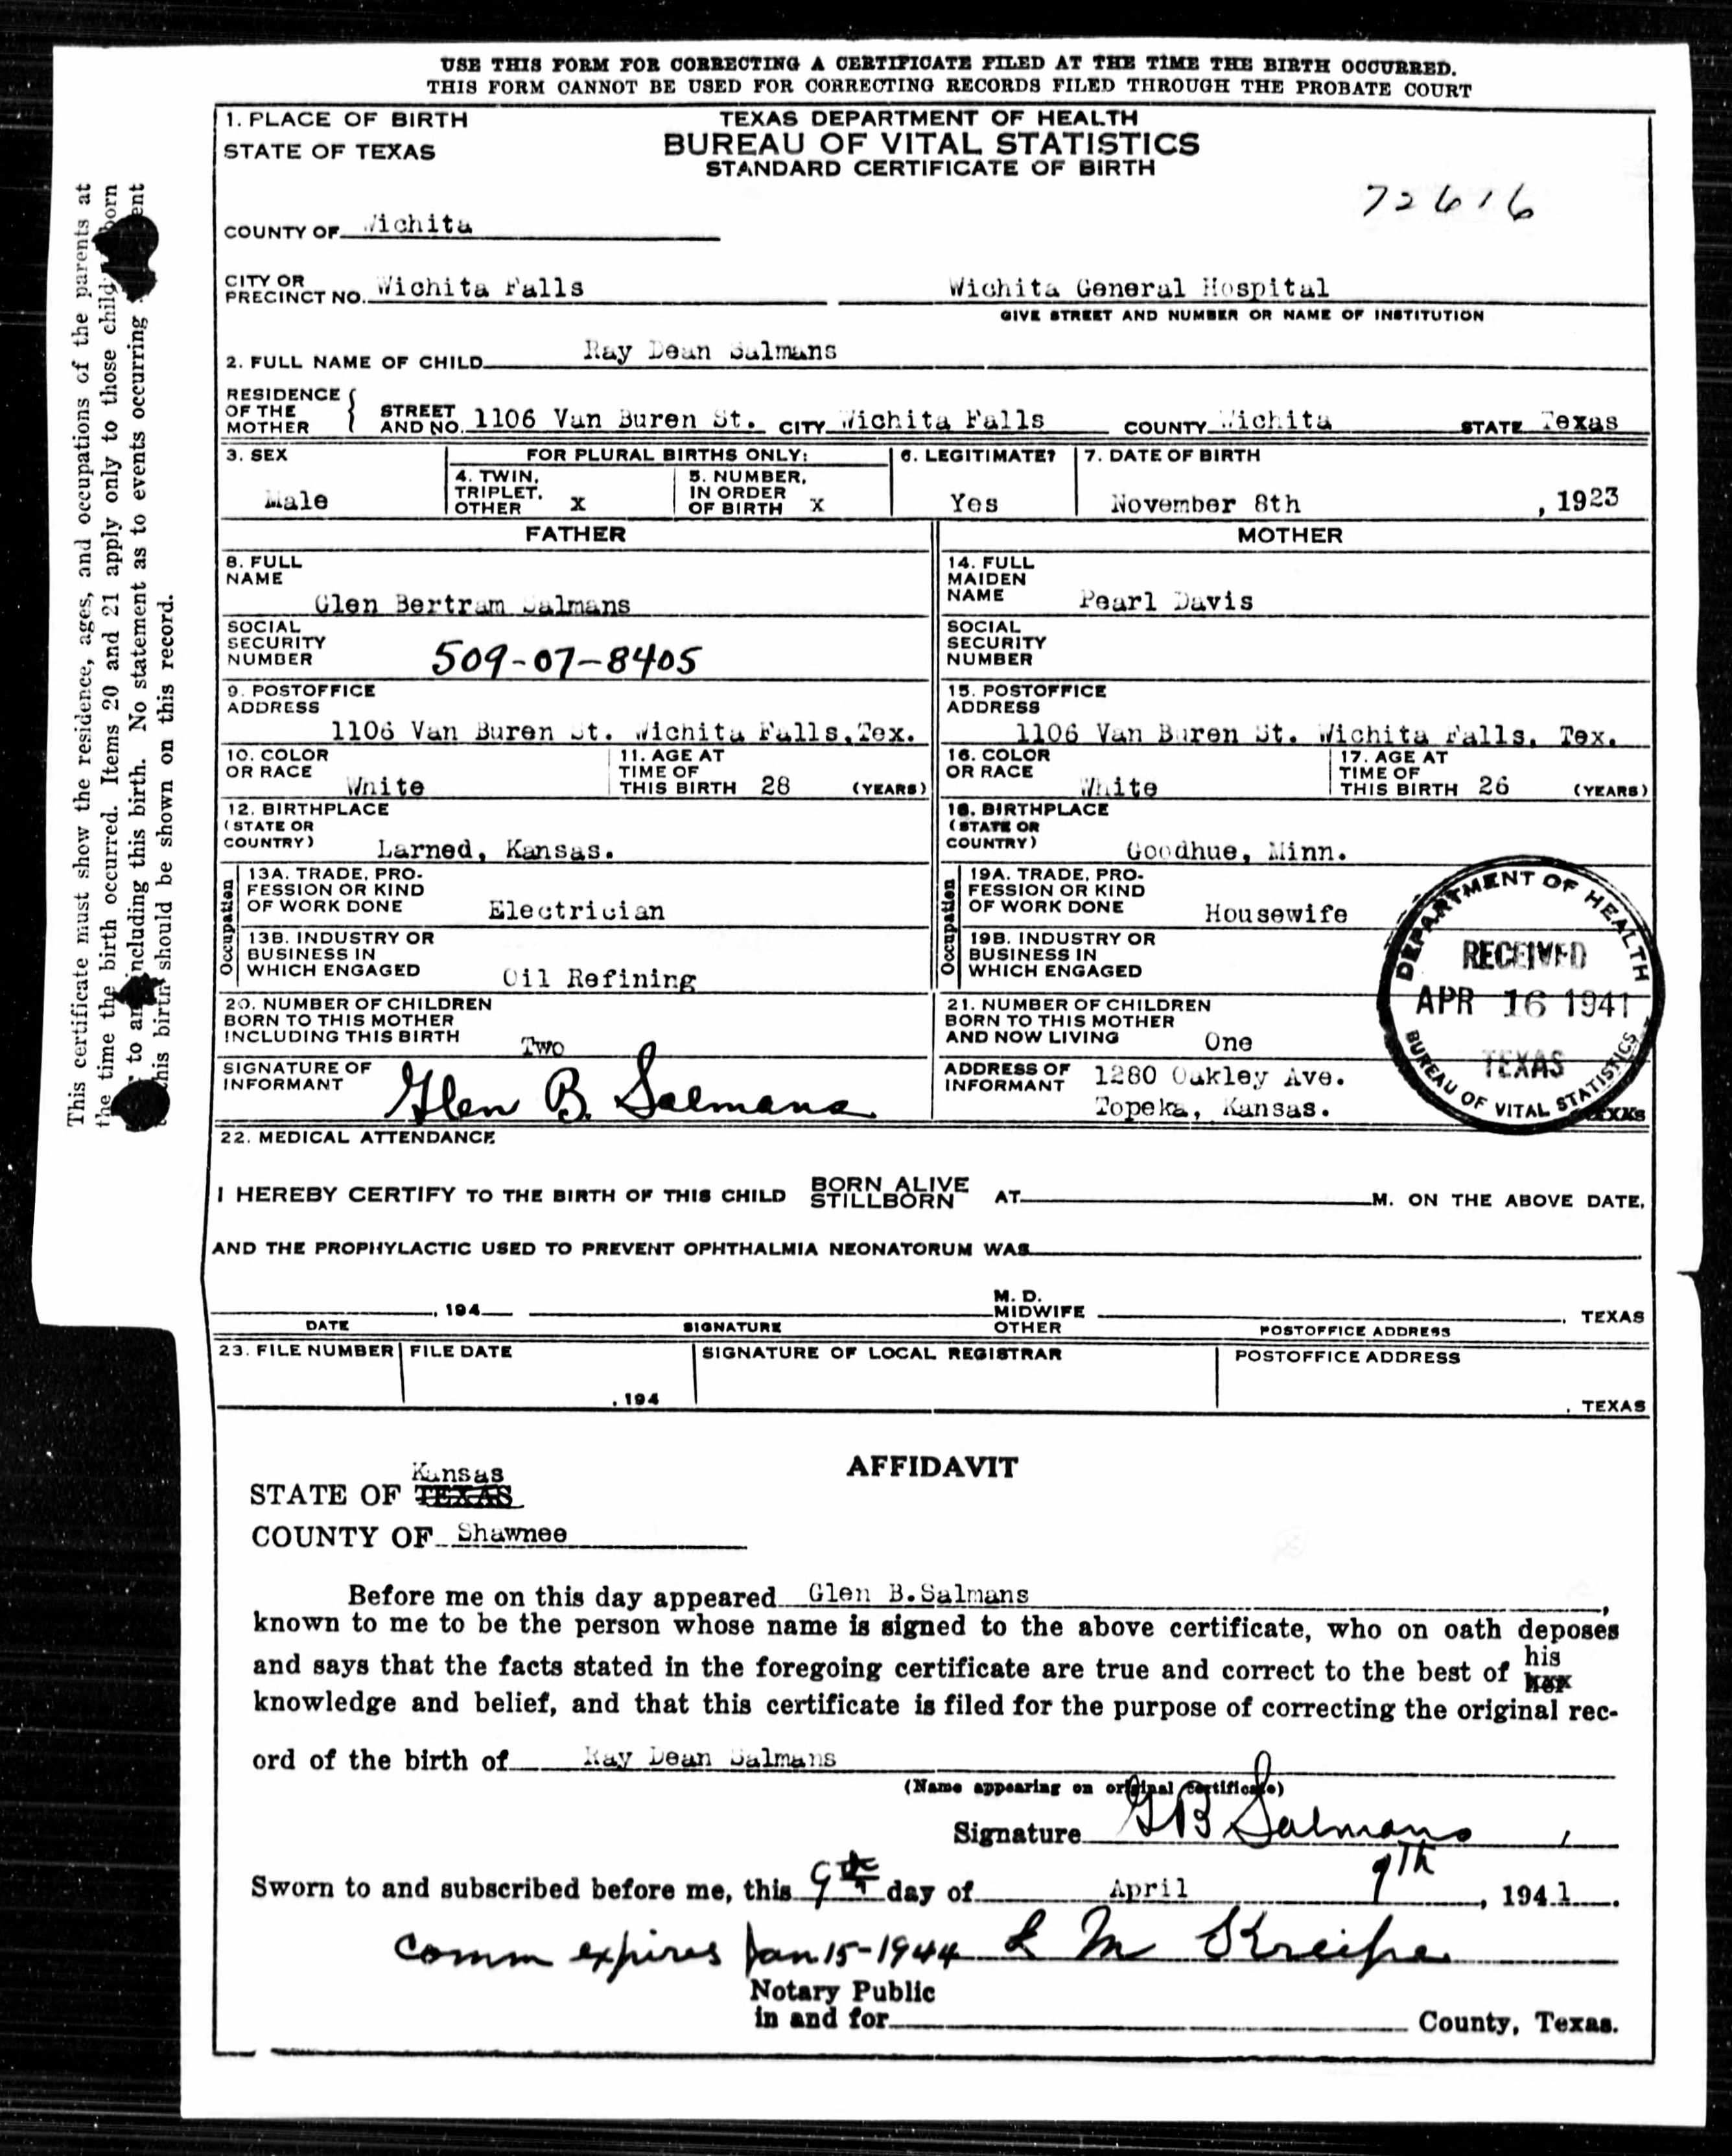 USE THIS FORM FOR CORRECTING A CERTIFICATE FILED AT THE TIME THE BIRTH OCCURRED.
THIS FORM CANNOT BE USED FOR CORRECTING RECORDS FILED THROUGH THE PROBATE COURT
1. PLACE OF BIRTH
STATE OF TEXAS
TEXAS DEPARTMENT OF HEALTH
BUREAU OF VITAL STATISTICS
STANDARD CERTIFICATE OF BIRTH
72616
COUNTY OF Wichita
CITY OR PRECINCT NO. Wichita Falls Wichita General Hospital
GIVE STREET AND NUMBER OR NAME OF INSTITUTION
2. FULL NAME OF CHILD Ray Dean Salmans
RESIDENCE OF THE MOTHER { STREET AND NO. 1106 Van Buren St. CITY Wichita Falls COUNTY Wichita STATE Texas
3. SEX Male
FOR PLURAL BIRTHS ONLY:
4. TWIN, TRIPLET, OTHER x
5. NUMBER, IN ORDER OF BIRTH x
6. LEGITIMATE? Yes
7. DATE OF BIRTH November 8th , 1923
FATHER
8. FULL NAME Glen Bertram Salmans
SOCIAL SECURITY NUMBER 509-07-8405
9. POSTOFFICE ADDRESS
1106 Van Buren St. Wichita Falls, Tex.
10. COLOR OR RACE White
11. AGE AT TIME OF THIS BIRTH 28 (YEARS)
12. BIRTHPLACE (STATE OR COUNTRY) Larned, Kansas.
Occupation
13A. TRADE, PROFESSION OR KIND OF WORK DONE Electrician
13B. INDUSTRY OR BUSINESS IN WHICH ENGAGED Oil Refining
20. NUMBER OF CHILDREN BORN TO THIS MOTHER INCLUDING THIS BIRTH Two
SIGNATURE OF INFORMANT Glen B. Salmans
MOTHER
14. FULL MAIDEN NAME Pearl Davis
SOCIAL SECURITY NUMBER
15. POSTOFFICE ADDRESS
1106 Van Buren St. Wichita Falls, Tex.
16. COLOR OR RACE White
17. AGE AT TIME OF THIS BIRTH 26 (YEARS)
18. BIRTHPLACE (STATE OR COUNTRY) Goodhue, Minn.
Occupation
19A. TRADE, PROFESSION OR KIND OF WORK DONE Housewife
19B. INDUSTRY OR BUSINESS IN WHICH ENGAGED
21. NUMBER OF CHILDREN BORN TO THIS MOTHER AND NOW LIVING One
ADDRESS OF INFORMANT 1280 Oakley Ave.
Topeka, Kansas.
DEPARTMENT OF HEALTH
RECEIVED
APR 16 1941
TEXAS
BUREAU OF VITAL STATISTICS
22. MEDICAL ATTENDANCE
I HEREBY CERTIFY TO THE BIRTH OF THIS CHILD BORN ALIVE STILLBORN AT M. ON THE ABOVE DATE,
AND THE PROPHYLACTIC USED TO PREVENT OPHTHALMIA NEONATORUM WAS
, 194 M. D. MIDWIFE OTHER , TEXAS
DATE SIGNATURE POSTOFFICE ADDRESS
23. FILE NUMBER FILE DATE SIGNATURE OF LOCAL REGISTRAR POSTOFFICE ADDRESS
, 194 , TEXAS
AFFIDAVIT
Kansas
STATE OF TEXAS
COUNTY OF Shawnee
Before me on this day appeared Glen B.Salmans ,
known to me to be the person whose name is signed to the above certificate, who on oath deposes
and says that the facts stated in the foregoing certificate are true and correct to the best of his
knowledge and belief, and that this certificate is filed for the purpose of correcting the original rec-
ord of the birth of Ray Dean Salmans
(Name appearing on original certificate)
Signature G B Salmans
Sworn to and subscribed before me, this 9th day of April 9th , 1941.
Comm expires Jan 15-1944 L M Kreipe
Notary Public
in and for County, Texas.
This certificate must show the residence, ages, and occupations of the parents at
the time the birth occurred. Items 20 and 21 apply only to those child born
to and including this birth. No statement as to events occurring
this birth should be shown on this record.